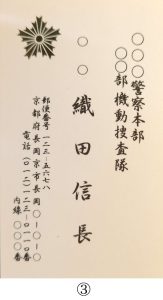 ○○○警察本部
○○部機動捜査隊
○○　織田信長
郵便番号　一二三―五六七八
京都府長岡京市長岡○―○―○
電話（○一二）一二三―○一一○番
内線○○○番
③